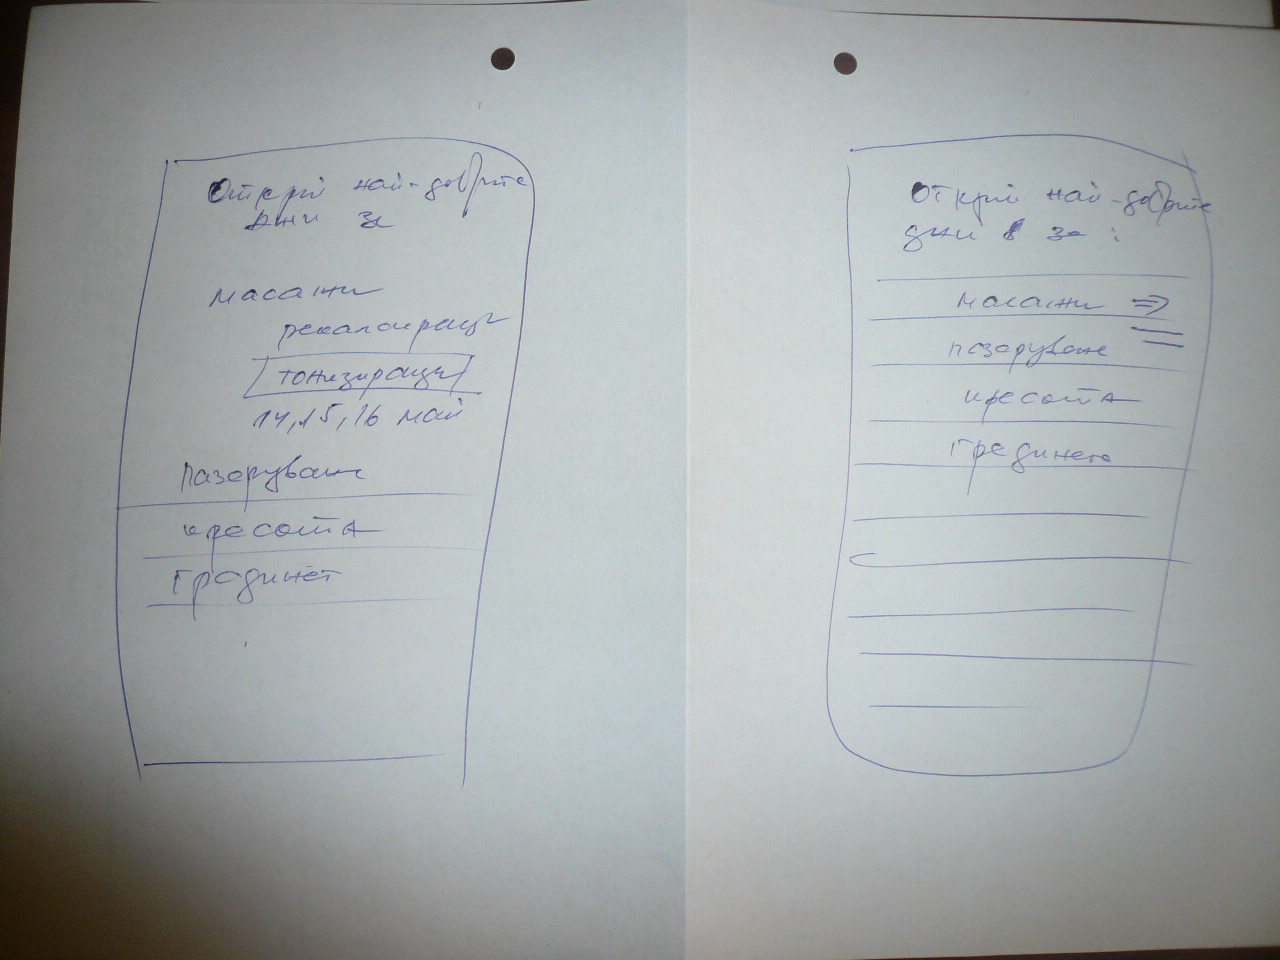 Открий най-добрите
дни за
масажи
релаксиращи
тонизиращи
14, 15, 16 май
пазаруване
красота
градинет
Открий най-добрите
дни за :
масажи
пазаруване
красота
градината